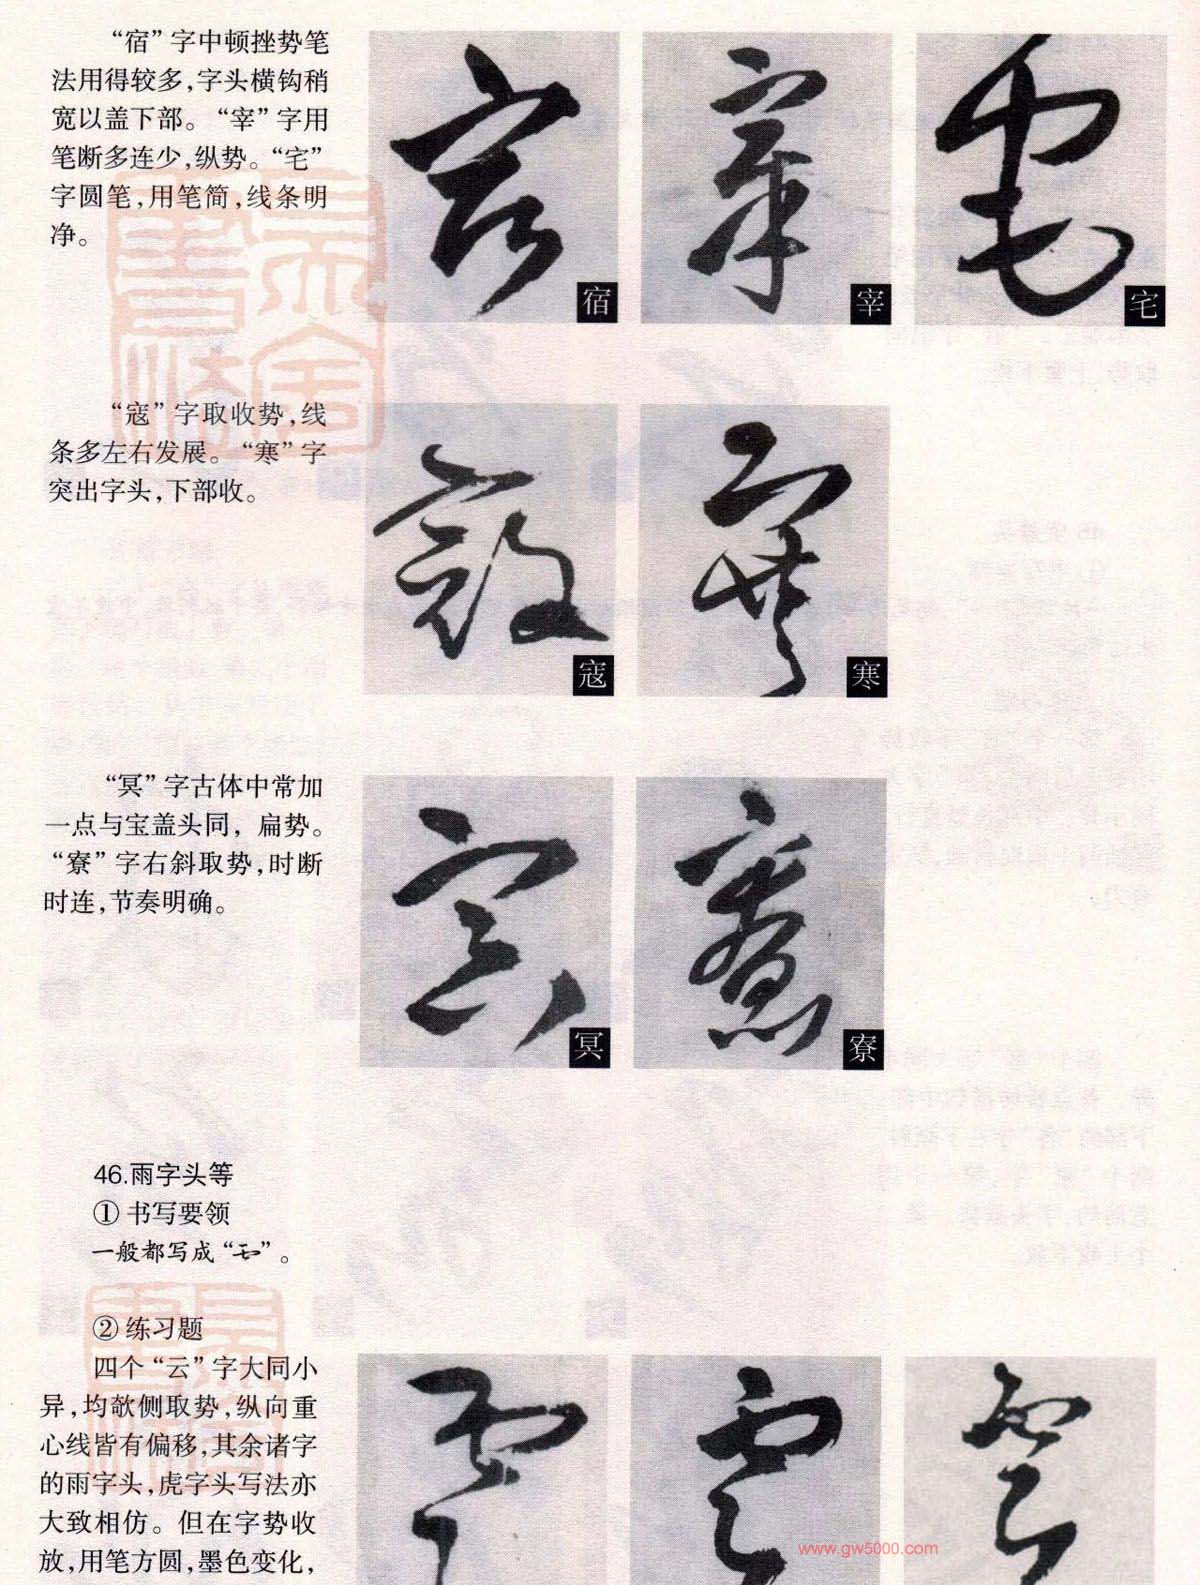 “宿”字中顿挫势笔
法用得较多,字头横钩稍
宽以盖下部。“宰”字用
笔断多连少,纵势。“宅”
字圆笔,用笔简,线条明
净。
宿
宰
宅
“寇”字取收势,线
条多左右发展。“寒”字
突出字头,下部收。
寇
寒
“冥”字古体中常加
一点与宝盖头同，扁势。
“寮”字右斜取势,时断
时连,节奏明确。
冥
寮
46.雨字头等
① 书写要领
一般都写成“”。
② 练习题
四个“云”字大同小
异,均欹侧取势,纵向重
心线皆有偏移,其余诸字
的雨字头,虎字头写法亦
大致相仿。但在字势收
放,用笔方圆,墨色变化,
www.gw5000.com